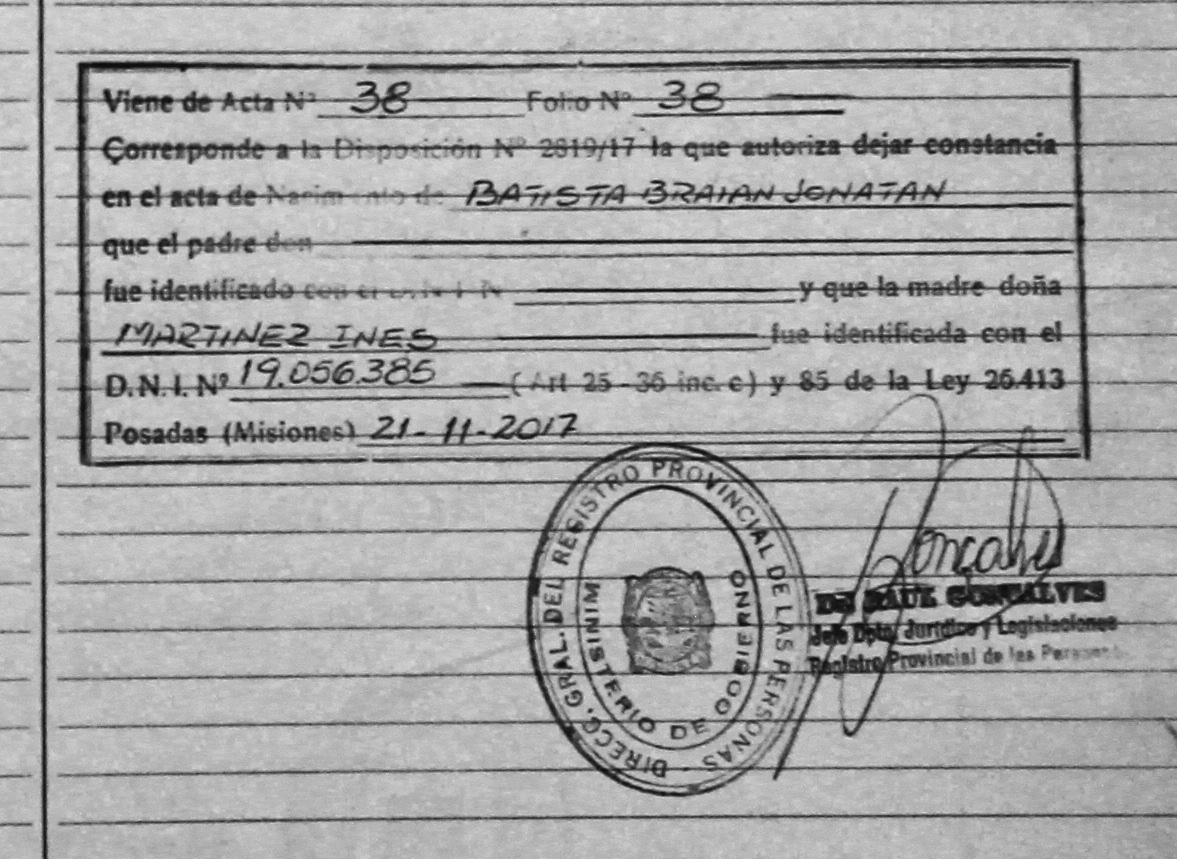 Viene de Acta Nº 38 Folio Nº 38
Corresponde a la Disposición Nº 2819/17 la que autoriza dejar constancia
en el acta de Nacimiento de BATISTA BRAIAN JONATAN
que el padre don
fue identificado con el D.N.I. Nº y que la madre doña
MARTINEZ INES fue identificada con el
D.N.I. Nº 19.056.385 (Art 25 - 36 inc. c) y 85 de la Ley 26.413
Posadas (Misiones) 21-11-2017
DIRECC. GRAL. DEL REGISTRO PROVINCIAL DE LAS PERSONAS -
MINISTERIO DE GOBIERNO
Gonçalves
RAUL GONÇALVES
Jefe Dpto. Jurídico y Legislaciones
Registro Provincial de las Personas